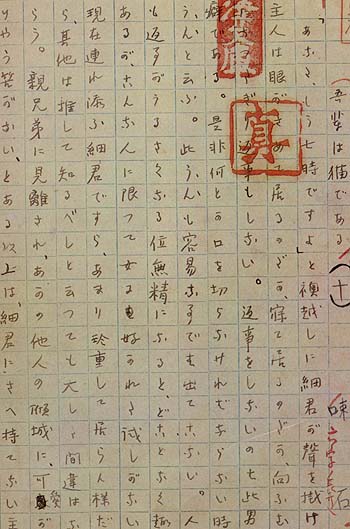 (吾輩は猫である) (十) 漱石
「あなた、もう七時ですよと襖越しに細君が声を掛け
主人は眼がさめて居るのだか、寝て居るのだか、向ふむ
ぎり返事もしない。返事をしないのは此男
癖である。是非何とか口を切らなければならない時
うんと云ふ。此うんも容易な事では出てこない。人
も返事がうるさくなる位無精になると、どことなく趣
あるが、こんな人に限つて女に好かれた試しがない
現在連れ添ふ細君ですら、あまり珍重して居らん様だ
ら、其他は推して知るべしと云つても大した間違は
らう。親兄弟に見離され、あかの他人の傾城に、可愛
りやう筈がない、とある以上は、細君にさへ持てない主